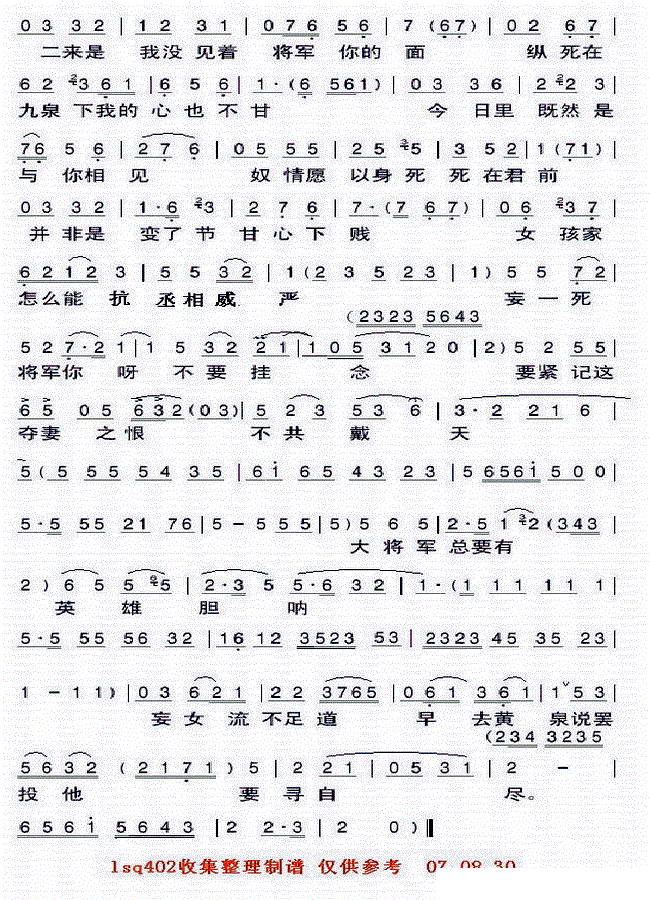 0 3 3 2 | 1 2 3 1 | 0 7 6 5 6 | 7 (6 7) | 0 2 6 7 |
二来是 我没见着 将军 你的 面 纵死在
6 2 2 3 6 1 | 6 5 6 | 1·(6 5 6 1) | 0 3 3 6 | 2 2 2 3 |
九泉 下我的 心也 不甘 今 日里 既然是
7 6 5 6 | 2 7 6 | 0 5 5 5 | 2 5 3 5 | 3 5 2 | 1 (7 1) |
与 你相 见 奴 情愿 以身 死 死 在君 前
0 3 3 2 | 1·6 2 3 | 2 7 6 | 7·(7 6 7) | 0 6 2 3 7 |
并 非是 变了 节 甘心下 贱 女 孩家
6 2 1 2 3 | 5 5 3 2 | 1 (2 3 5 2 3 | 1) 5 5 7 2 |
怎么能 抗 丞相威 严 妾 一 死
(2 3 2 3 5 6 4 3
5 2 7·2 1 | 1 5 3 2 2 1 | 1 0 5 3 1 2 0 | 2) 5 2 5 5 |
将军你 呀 不 要 挂 念 要紧 记这
6 5 0 5 6 3 2 (0 3) | 5 2 3 5 3 6 | 3·2 2 1 6 |
夺妻 之恨 不共 戴 天
5 (5 5 5 5 4 3 5 | 6 i 6 5 4 3 2 3 | 5 6 5 6 i 5 0 0 |
5·5 5 5 2 1 7 6 | 5 – 5 5 5 | 5) 5 6 5 | 2·5 1 3 2 (3 4 3 |
大 将 军 总要有
2) 6 5 5 6 5 | 2·3 5 5·6 3 2 | 1·(1 1 1 1 1 1 |
英 雄 胆 呐
5·5 5 5 5 6 3 2 | 1 6 1 2 3 5 2 3 5 3 | 2 3 2 3 4 5 3 5 2 3 |
1 – 1 1) | 0 3 6 2 1 | 2 2 3 7 6 5 | 0 6 1 3 6 1 | 1 5 3 |
妾 女 流 不足 道 早 去黄 泉说罢
(2 3 4 3 2 3 5
5 6 3 2 (2 1 7 1) 5 | 2 2 1 | 0 5 3 1 | 2 – |
投 他 要 寻自 尽。
6 5 6 i 5 6 4 3 | 2 2·3 | 2 0) ‖
lsq402收集整理制谱 仅供参考 07 08 30